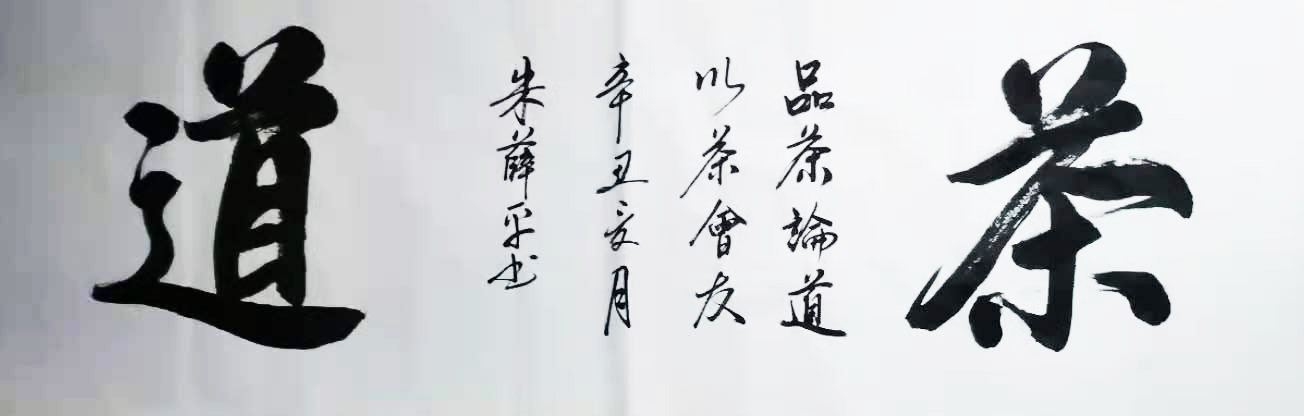 茶
品茶論道
以茶會友
辛丑亥月
朱薛平书
道